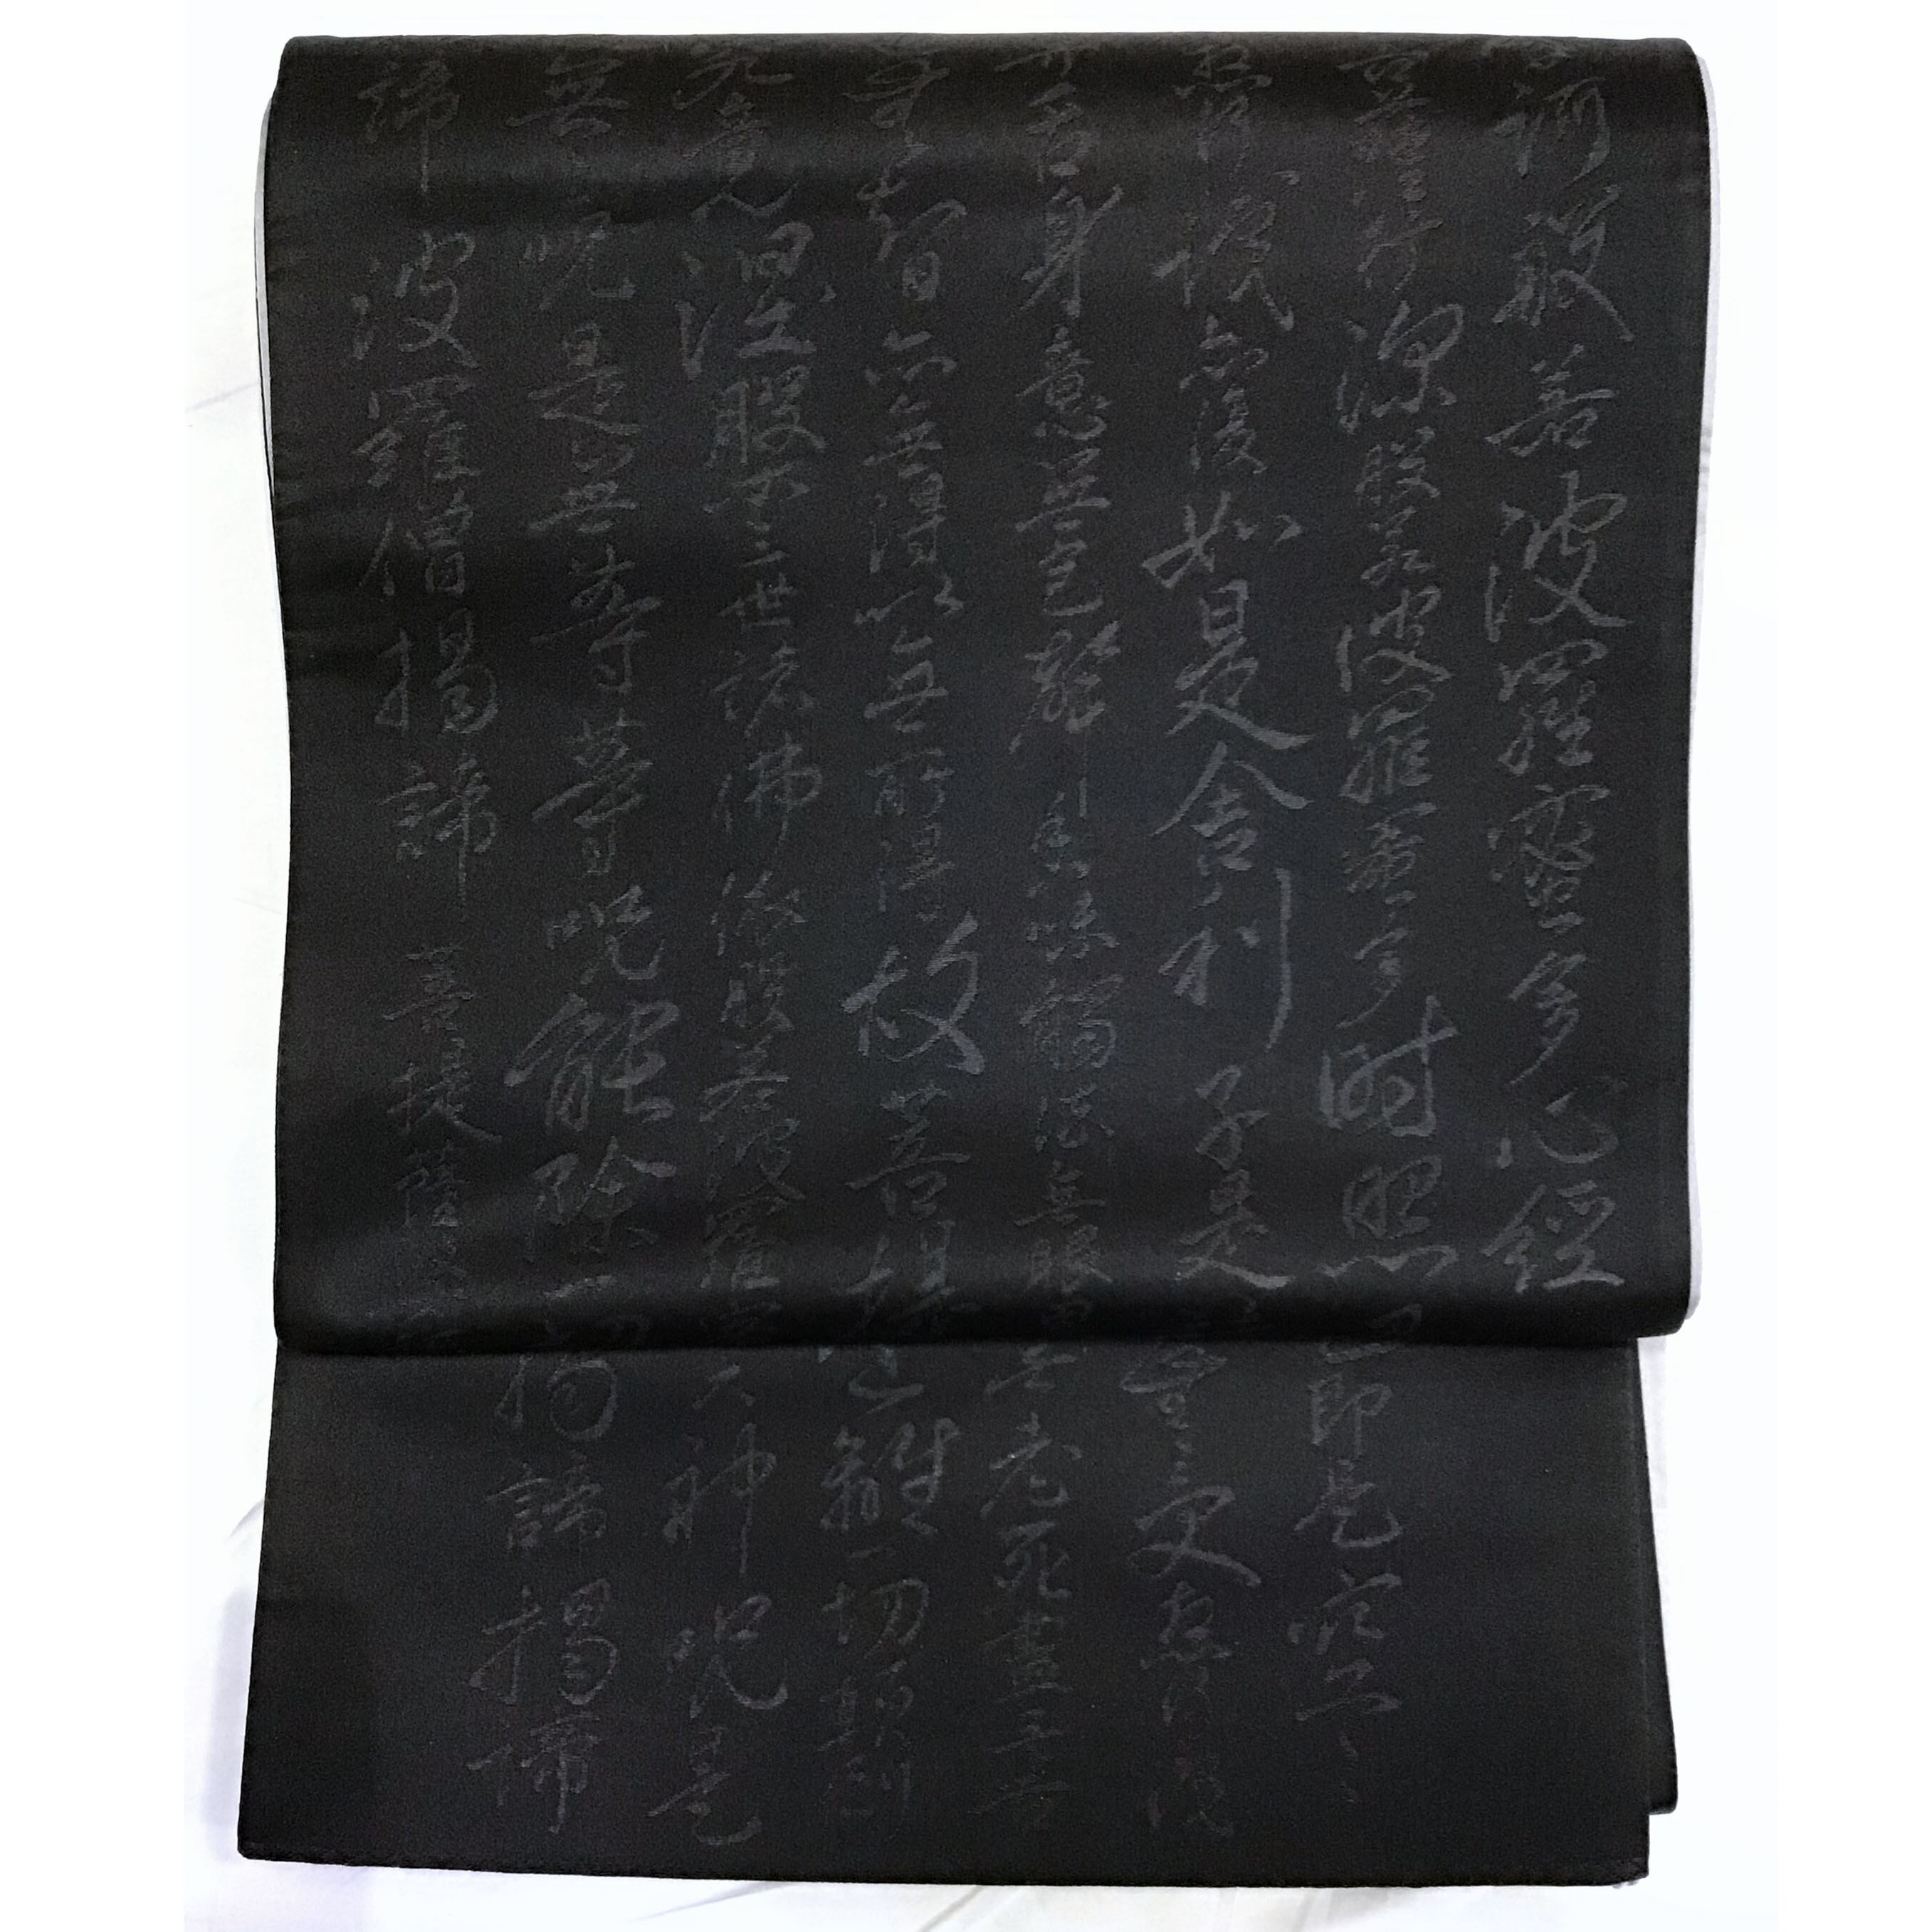 訶般若波羅蜜多心經
菩薩行深般若波羅蜜多時照
想行識亦復如是舍利子是
舌身意無色聲香味觸法無眼
無智亦無得以無所得故菩提
究竟涅槃三世諸佛依般若波羅
無上呪是無等等呪能除
諦波羅僧揭諦菩提薩
即是空空
受想行識
老死盡無苦
離一切顛倒
大神呪是
揭諦揭諦